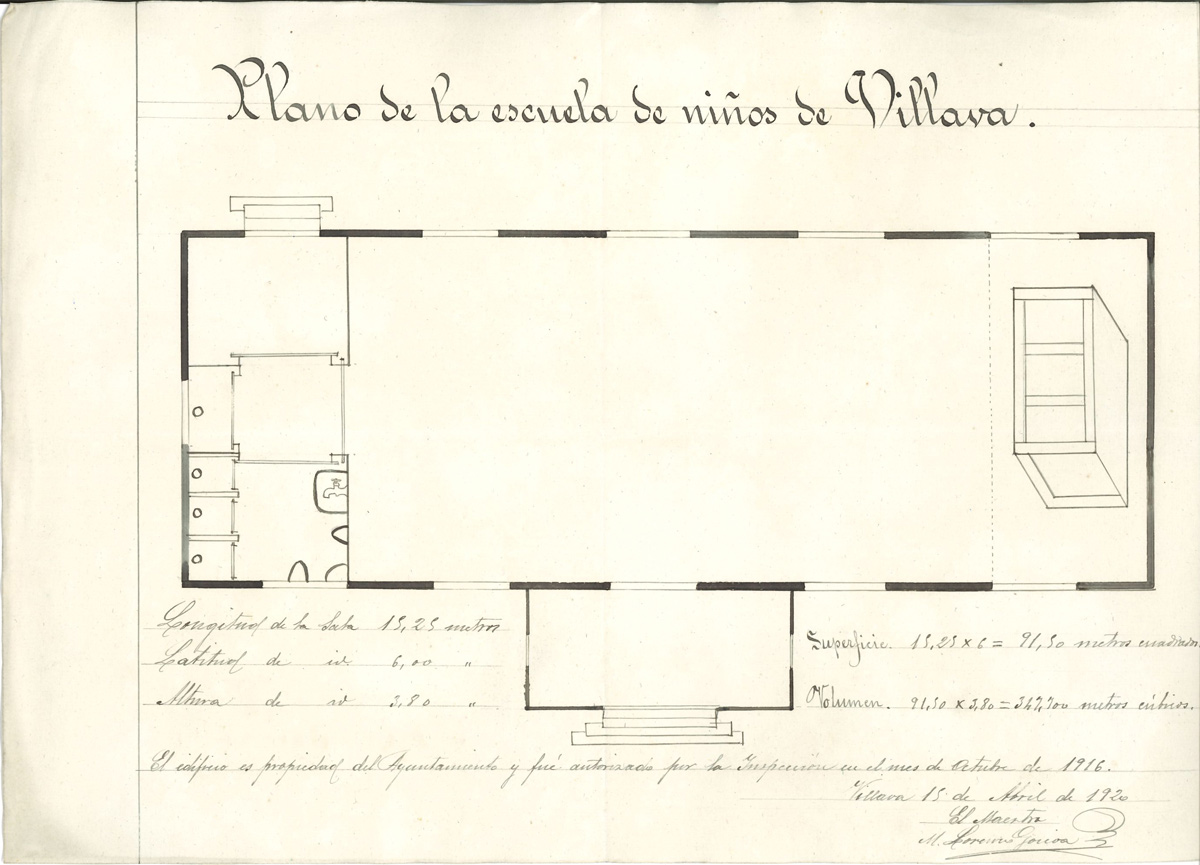 Plano de la escuela de niños de Villava.
Longitud de la Sala 15,25 metros
Latitud de id 6,00 "
Altura de id 3,80 "
Superficie. 15,25 x 6 = 91,50 metros cuadrados.
Volumen. 91,50 x 3,80 = 347,700 metros cúbicos.
El edificio es propiedad del Ayuntamiento y fué autorizado por la Inspección en el mes de Octubre de 1916.
Villava 15 de Abril de 1920
El Maestro
M. Lorenzo